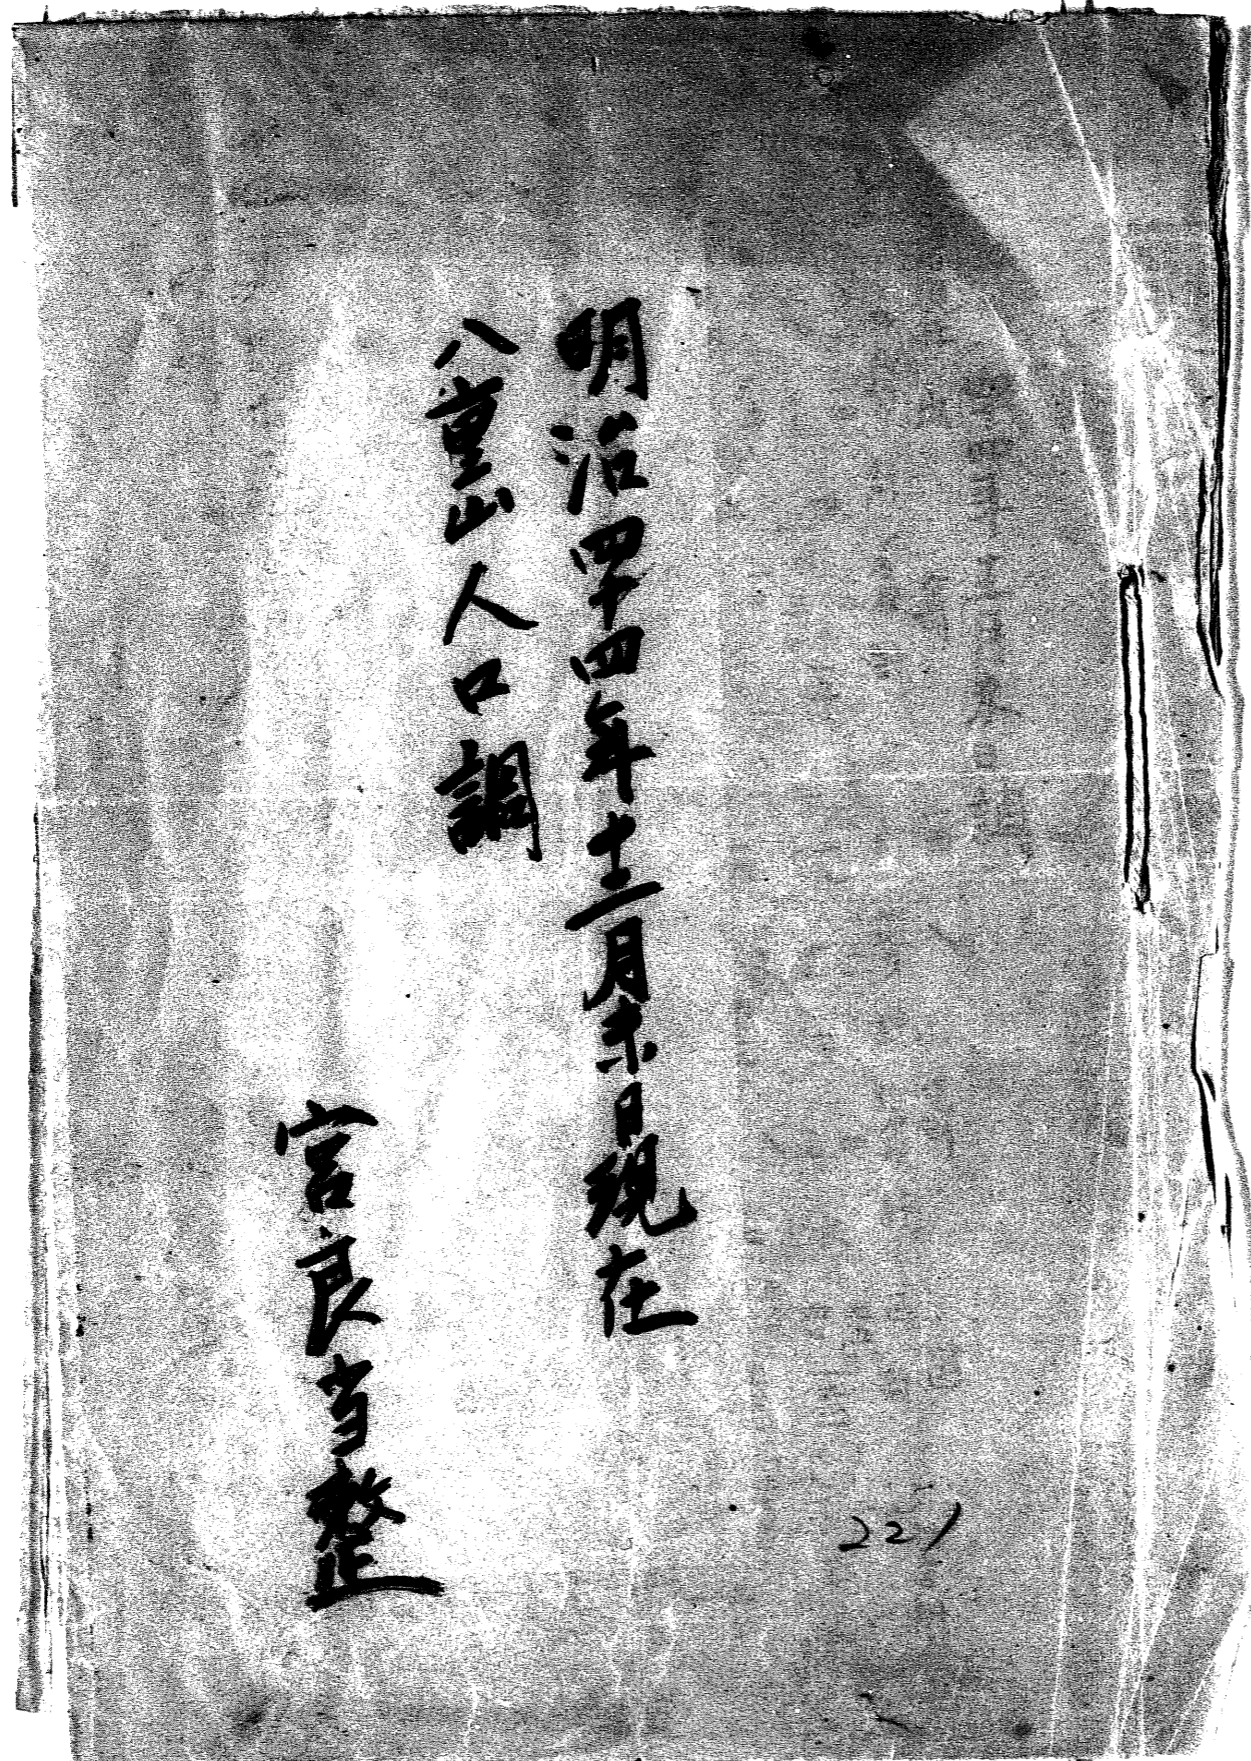 明治四十四年十二月末日現在
八重山人口調
宮良当整
221